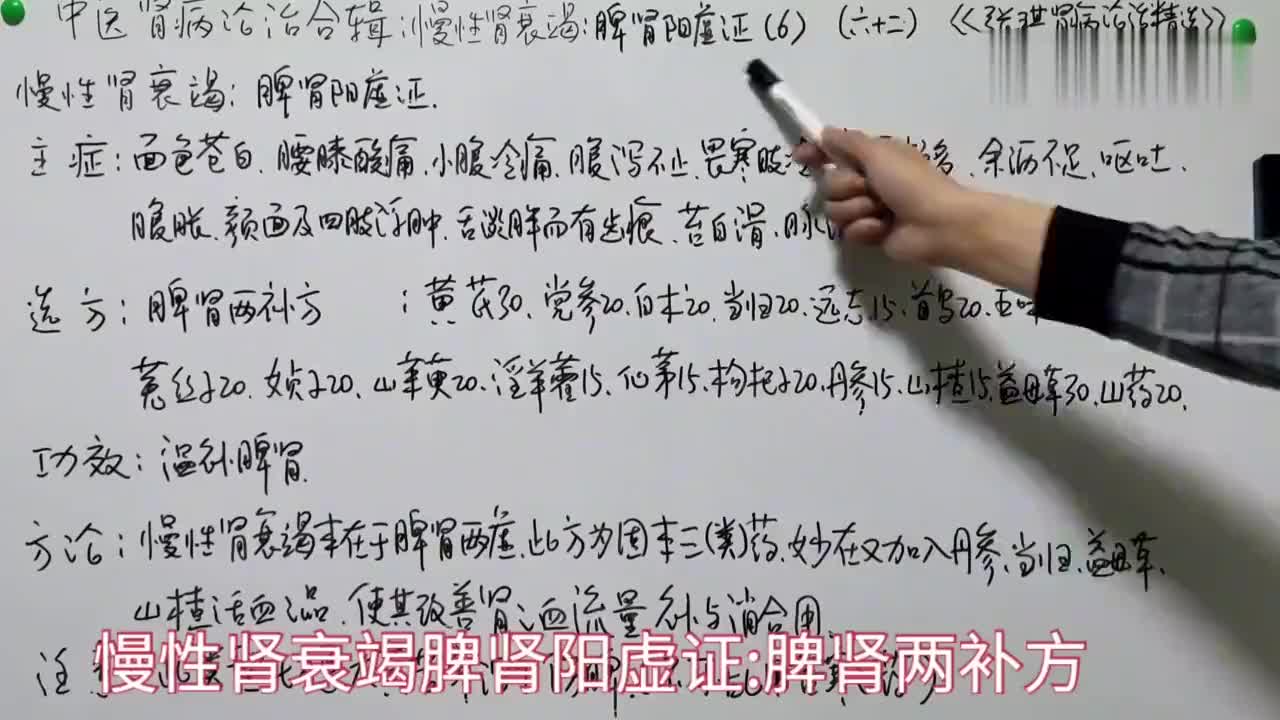 中医肾病论治合辑:慢性肾衰竭:脾肾阳虚证(6) (六十二) 《张琪肾病论治精选》
慢性肾衰竭:脾肾阳虚证.
主症:面色苍白.腰膝酸痛.小腹冷痛.腹泻不止.畏寒肢 多.余沥不足.呕吐.
腹胀.颜面及四肢浮肿.舌淡胖而有齿痕.苔白滑.脉
选方:脾肾两补方 :黄芪30.党参20.白术20.当归20.远志15.首乌20.五味
菟丝子20.女贞子20.山茱萸20.淫羊藿15.仙茅15.枸杞子20.丹参15.山楂15.益母草30.山药20.
功效:温补脾肾
方论:慢性肾衰竭本在于脾肾两虚.此方为固本之(类)药.妙在又加入丹参.当归.益母草.
山楂活血之品.使其改善肾血流量.补与消合用.
注
慢性肾衰竭脾肾阳虚证:脾肾两补方